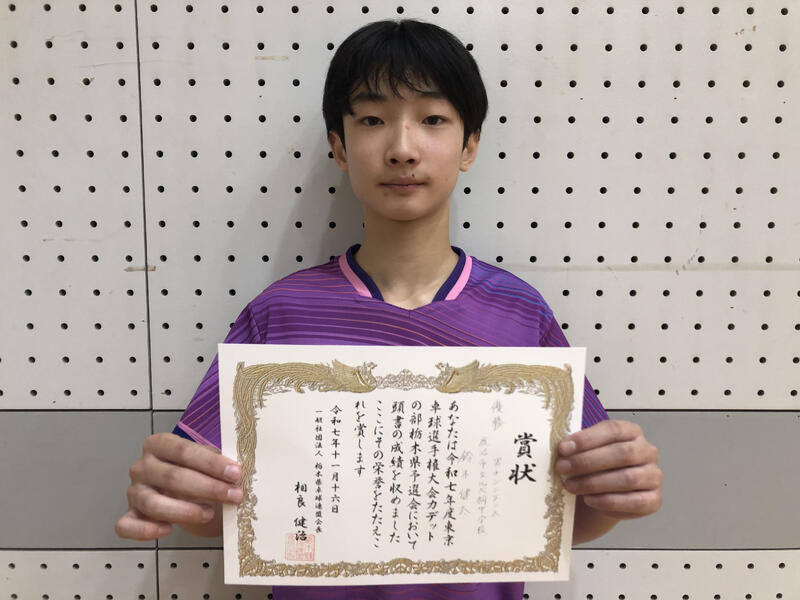 賞状
優勝 男子シングルス
鈴木 健太
あなたは令和七年度東京
卓球選手権大会カデット
の部栃木県予選会において
頭書の成績を収めました
ここにその栄誉をたたえこ
れを賞します
令和七年十一月十六日
一般社団法人 栃木県卓球連盟会長
相良 健治